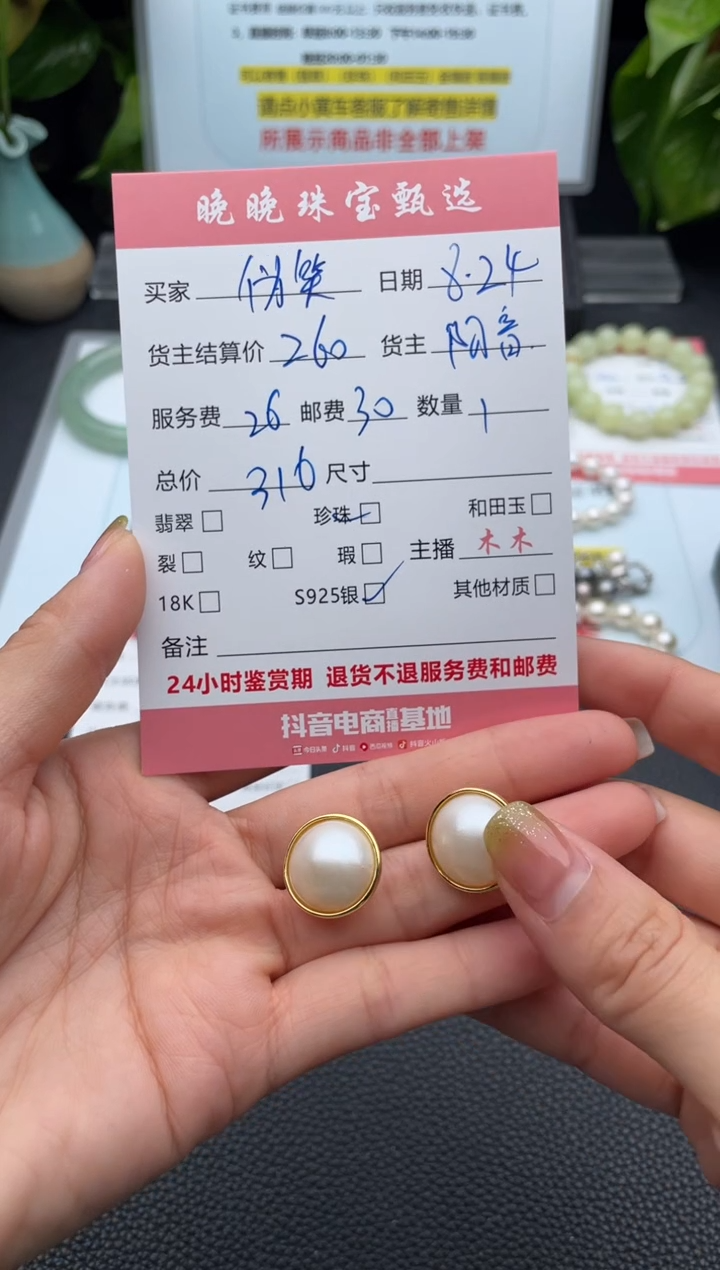 请点小黄车客服了解密售详情
所展示商品非全部上架
晚晚珠宝甄选
买家 俏笑 日期 8.24
货主结算价 260 货主 阳音.
服务费 26 邮费 30 数量 1
总价 316 尺寸
翡翠 珍珠 和田玉
裂 纹 瑕 主播 木木
18K S925银 其他材质
备注
24小时鉴赏期 退货不退服务费和邮费
抖音电商直播基地
今日头条 抖音 西瓜视频 抖音火山